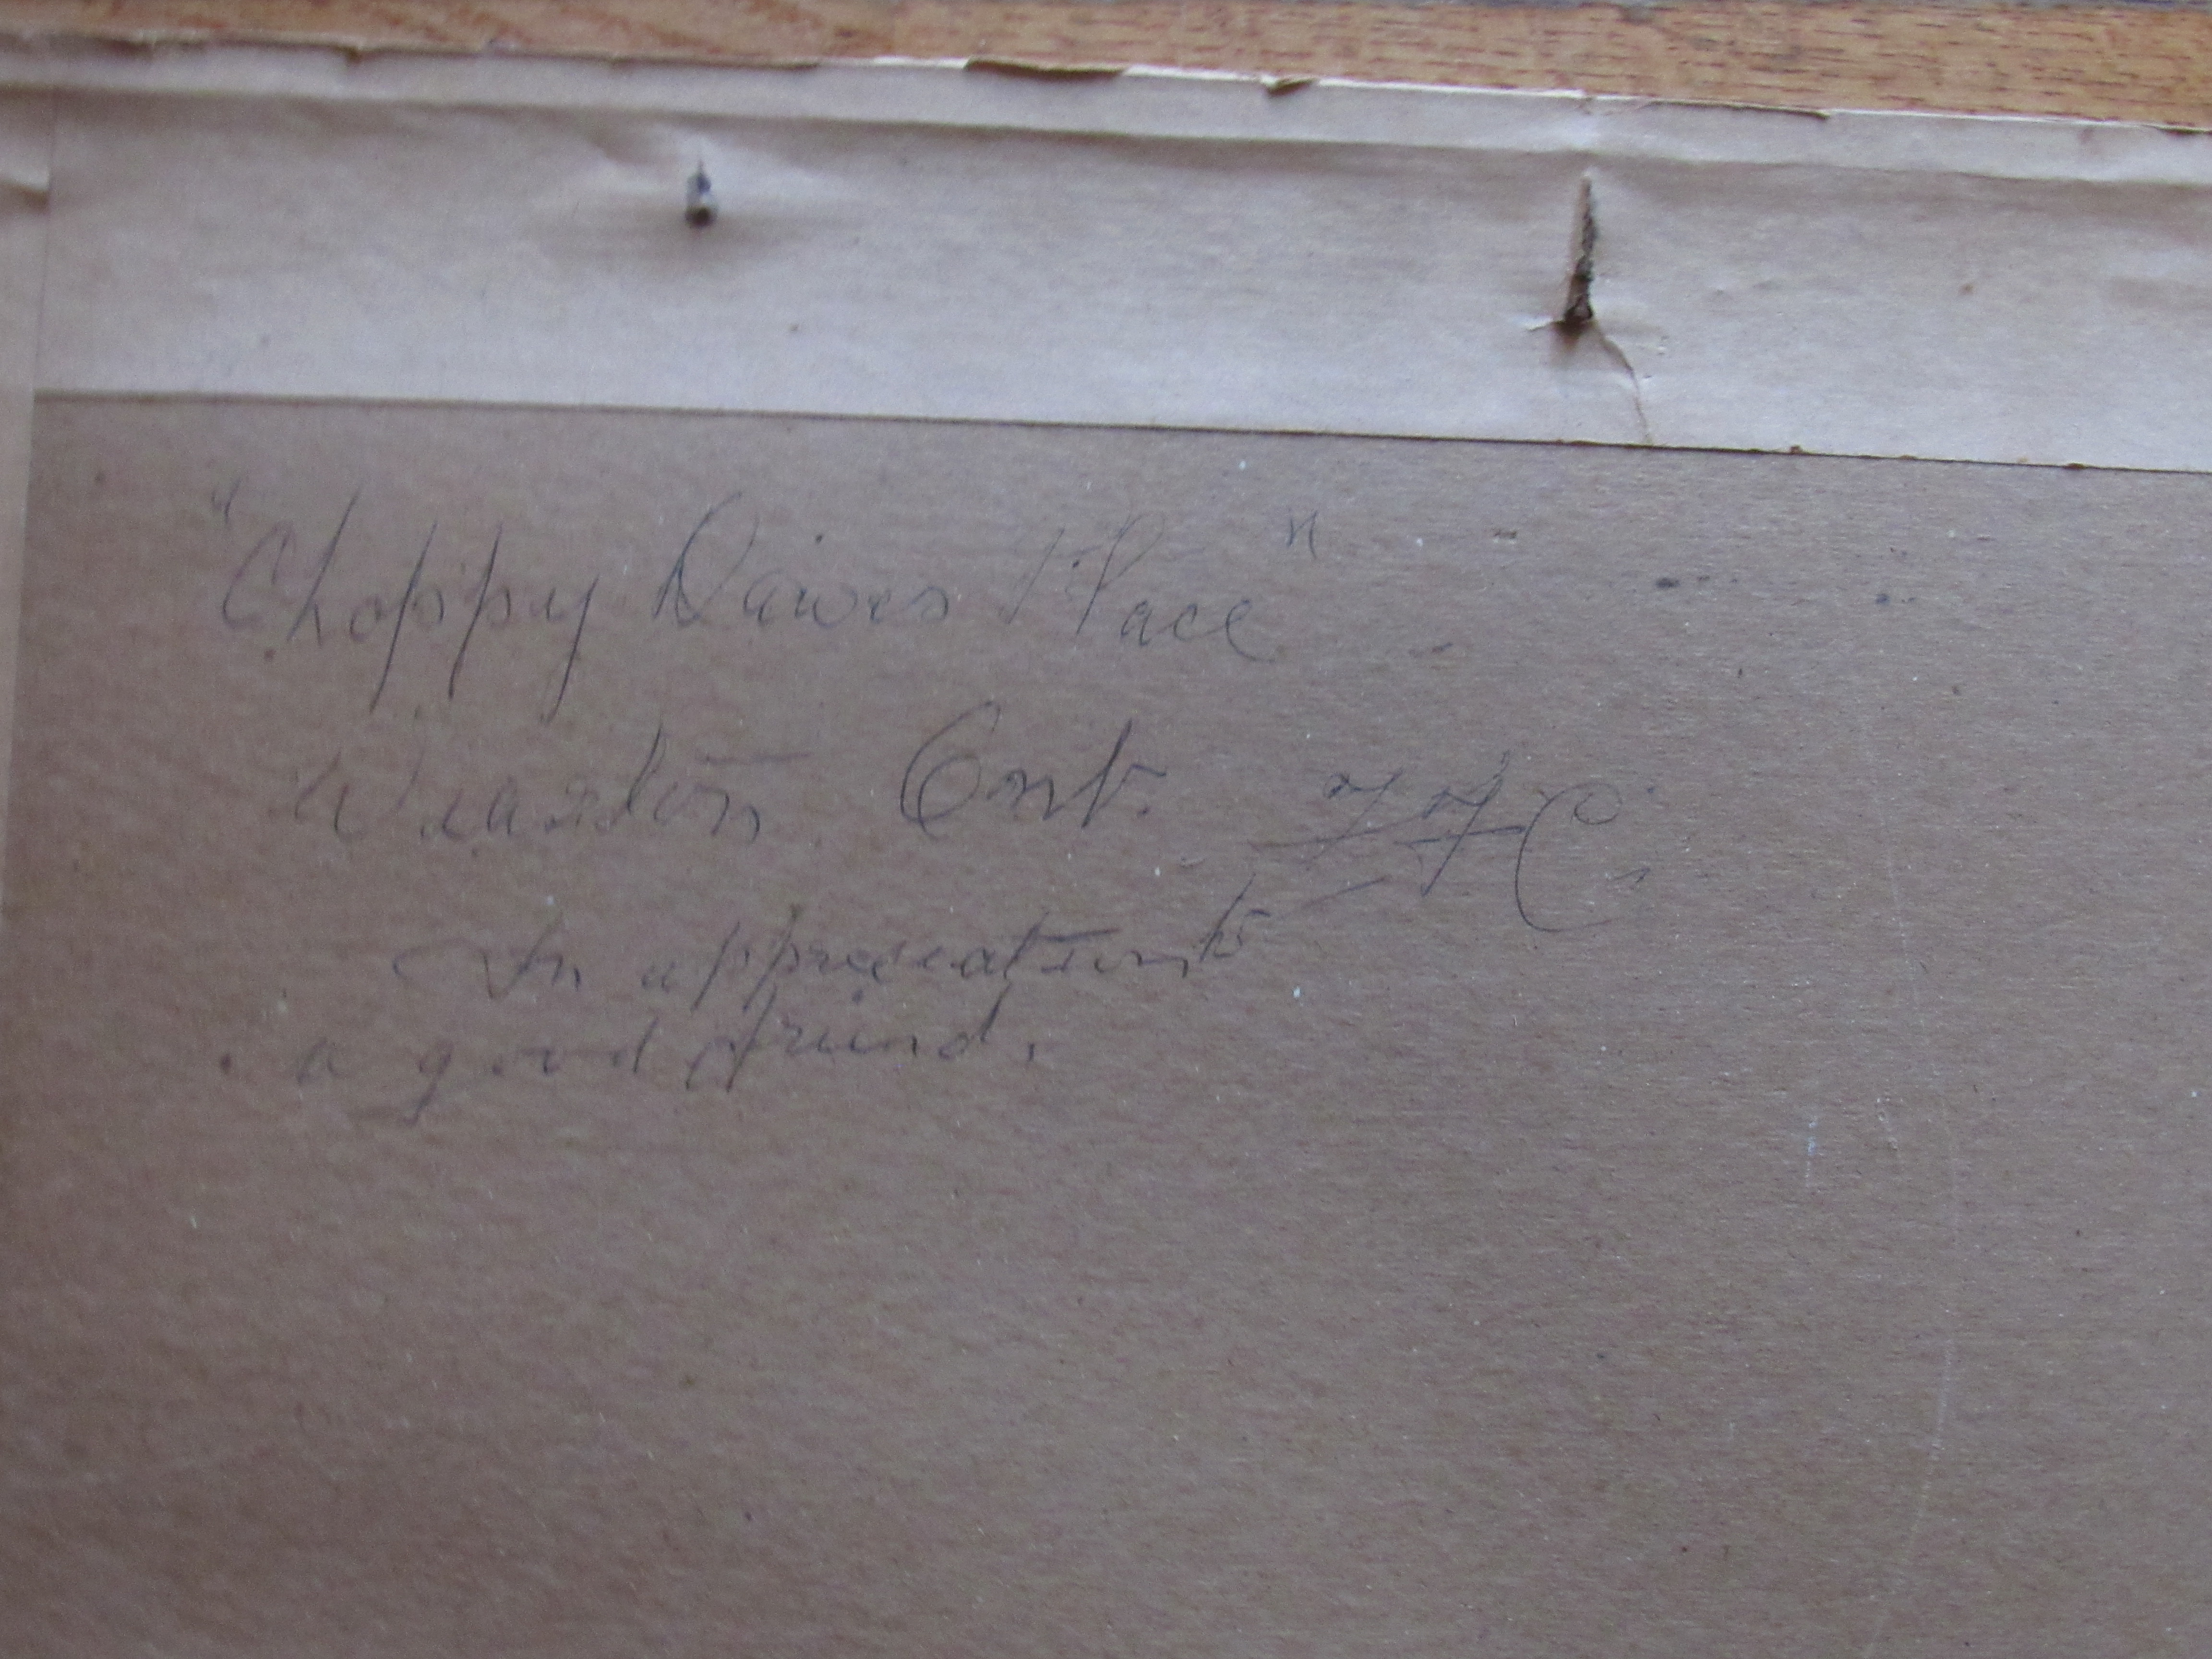 "Choppy Dawes Place"
Wiarton Ont. F.F.C.
In appreciation to
a good friend.